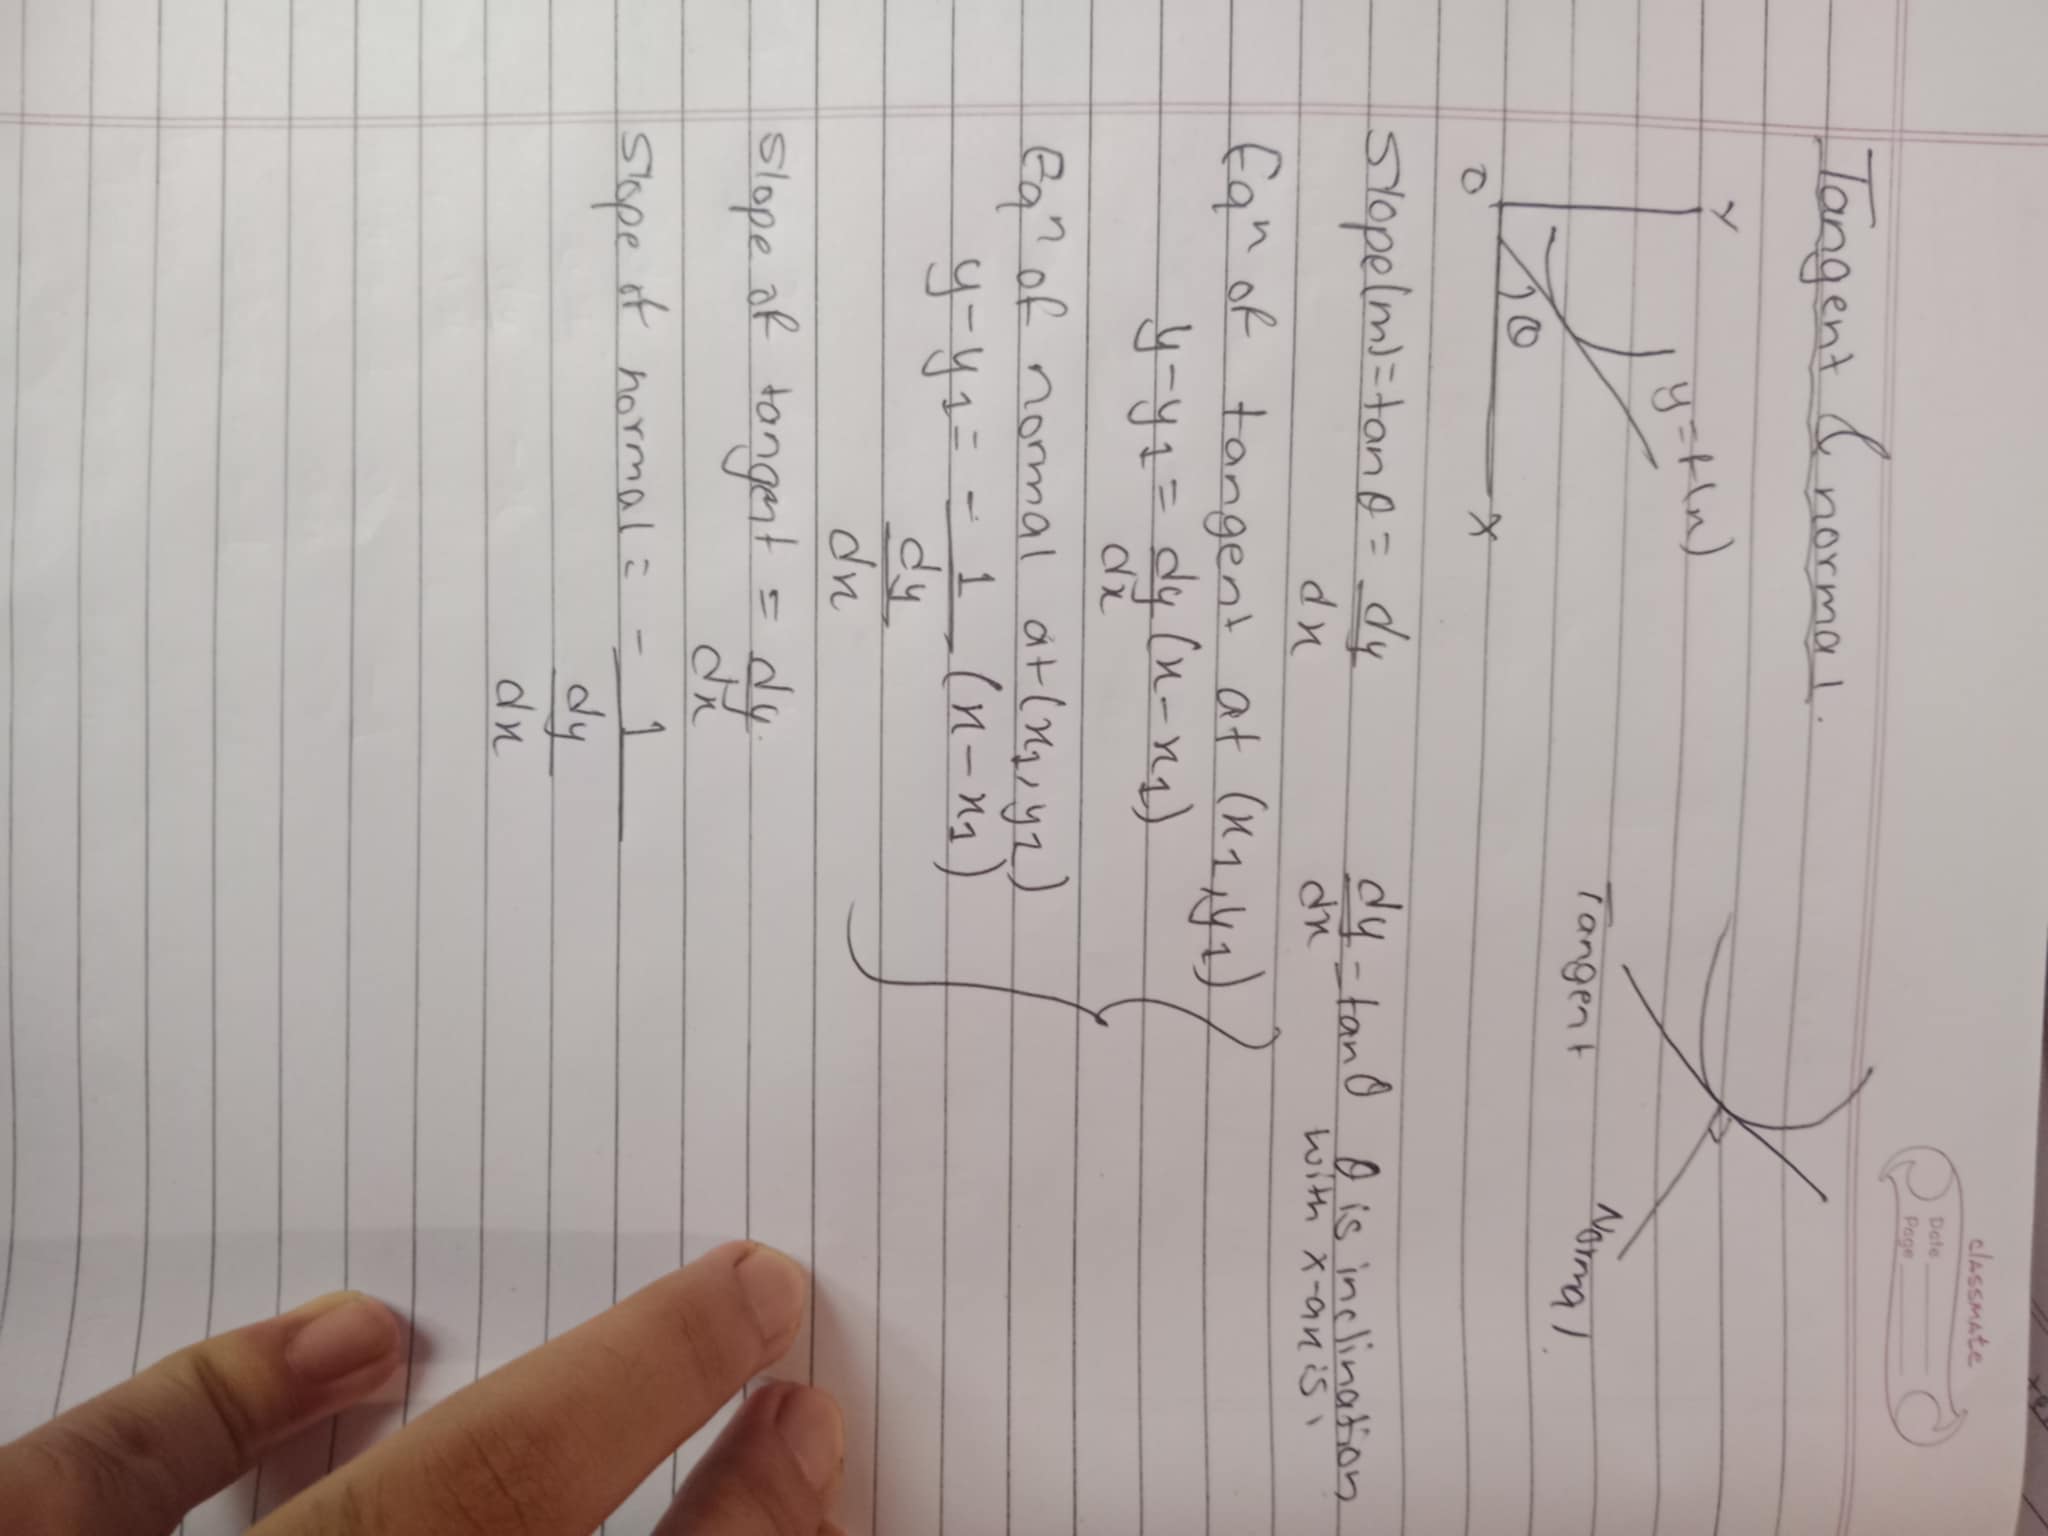 classmate
Date
Page
Tangent & normal.
Y
y=f(x)
θ
O
X
Tangent
Normal
Slope(m)=tanθ = dy/dx
dy/dx - tanθ θ is inclination
with x-axis.
Eqⁿ of tangent at (x₁,y₁)
y-y₁ = dy/dx (x-x₁)
Eqⁿ of normal at (x₁,y₁)
y-y₁ = - 1/(dy/dx) (x-x₁)
Slope of tangent = dy/dx.
Slope of normal = - 1/(dy/dx)